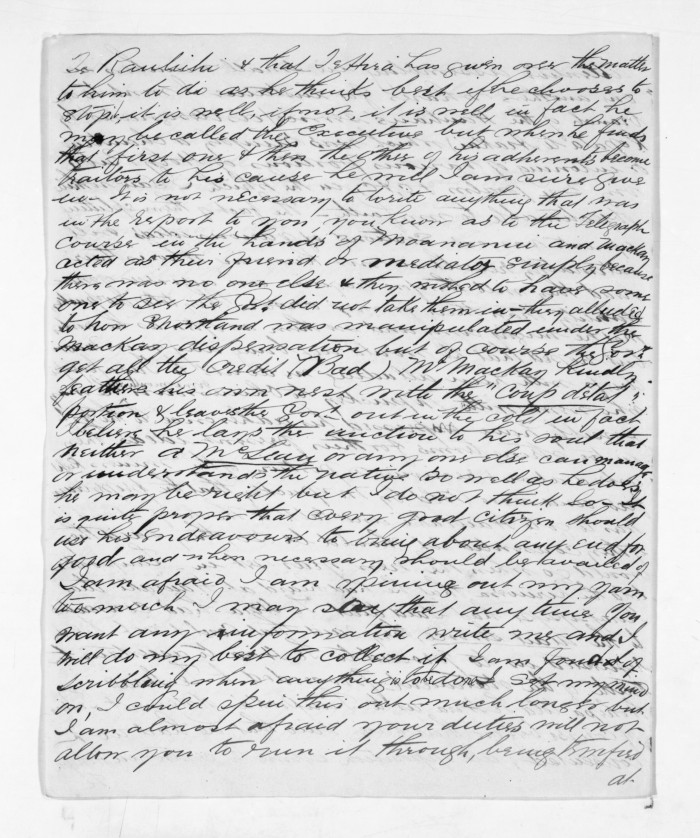 Te Raukihi & that Te Hira has given over the matter
to him to do as he thinks best if he chooses to
stop, it is well, if not, it is well in fact he
may be called the Executive but when he finds
that first one & then the other of his adherents become
traitors to his cause he will I am sure give
in. It is not necessary to write anything that was
in the report to you, you know as to the Telegraph
course in the hands of Moananui and Mackay
acted as their friend or mediator simply because
there was no one else & they wished to have some
one to see the Govt. did not take them in - they alluded
to how Shortland was manipulated under the
Mackay dispensation but of course the Govt
get all the Credit (Bad) Mr Mackay kindly
feathers his own nest with the "coup d'etat";
portion & leaves the Govt out in the cold in fact
I believe he lays the unction to his soul that
neither a McLean or any one else can manage
or understands the native so well as he does,
he may be right but I do not think so. It
is quite proper that every good citizen should
use his endeavours to bring about any end for
good and when necessary should be availed of
I am afraid I am spining out my yarn
too much I may say that any time you
want any information write me and I
will do my best to collect it I am fond of
scribbling when anything is to be done I set my mind
on, I could spin this out much longer but
I am almost afraid your duties will not
allow you to run it through, being
at